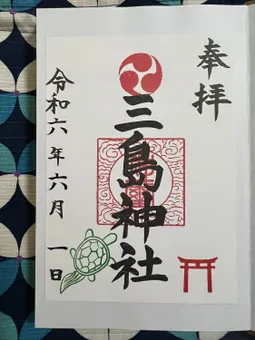 奉拝
三島神社
令和六年六月一日